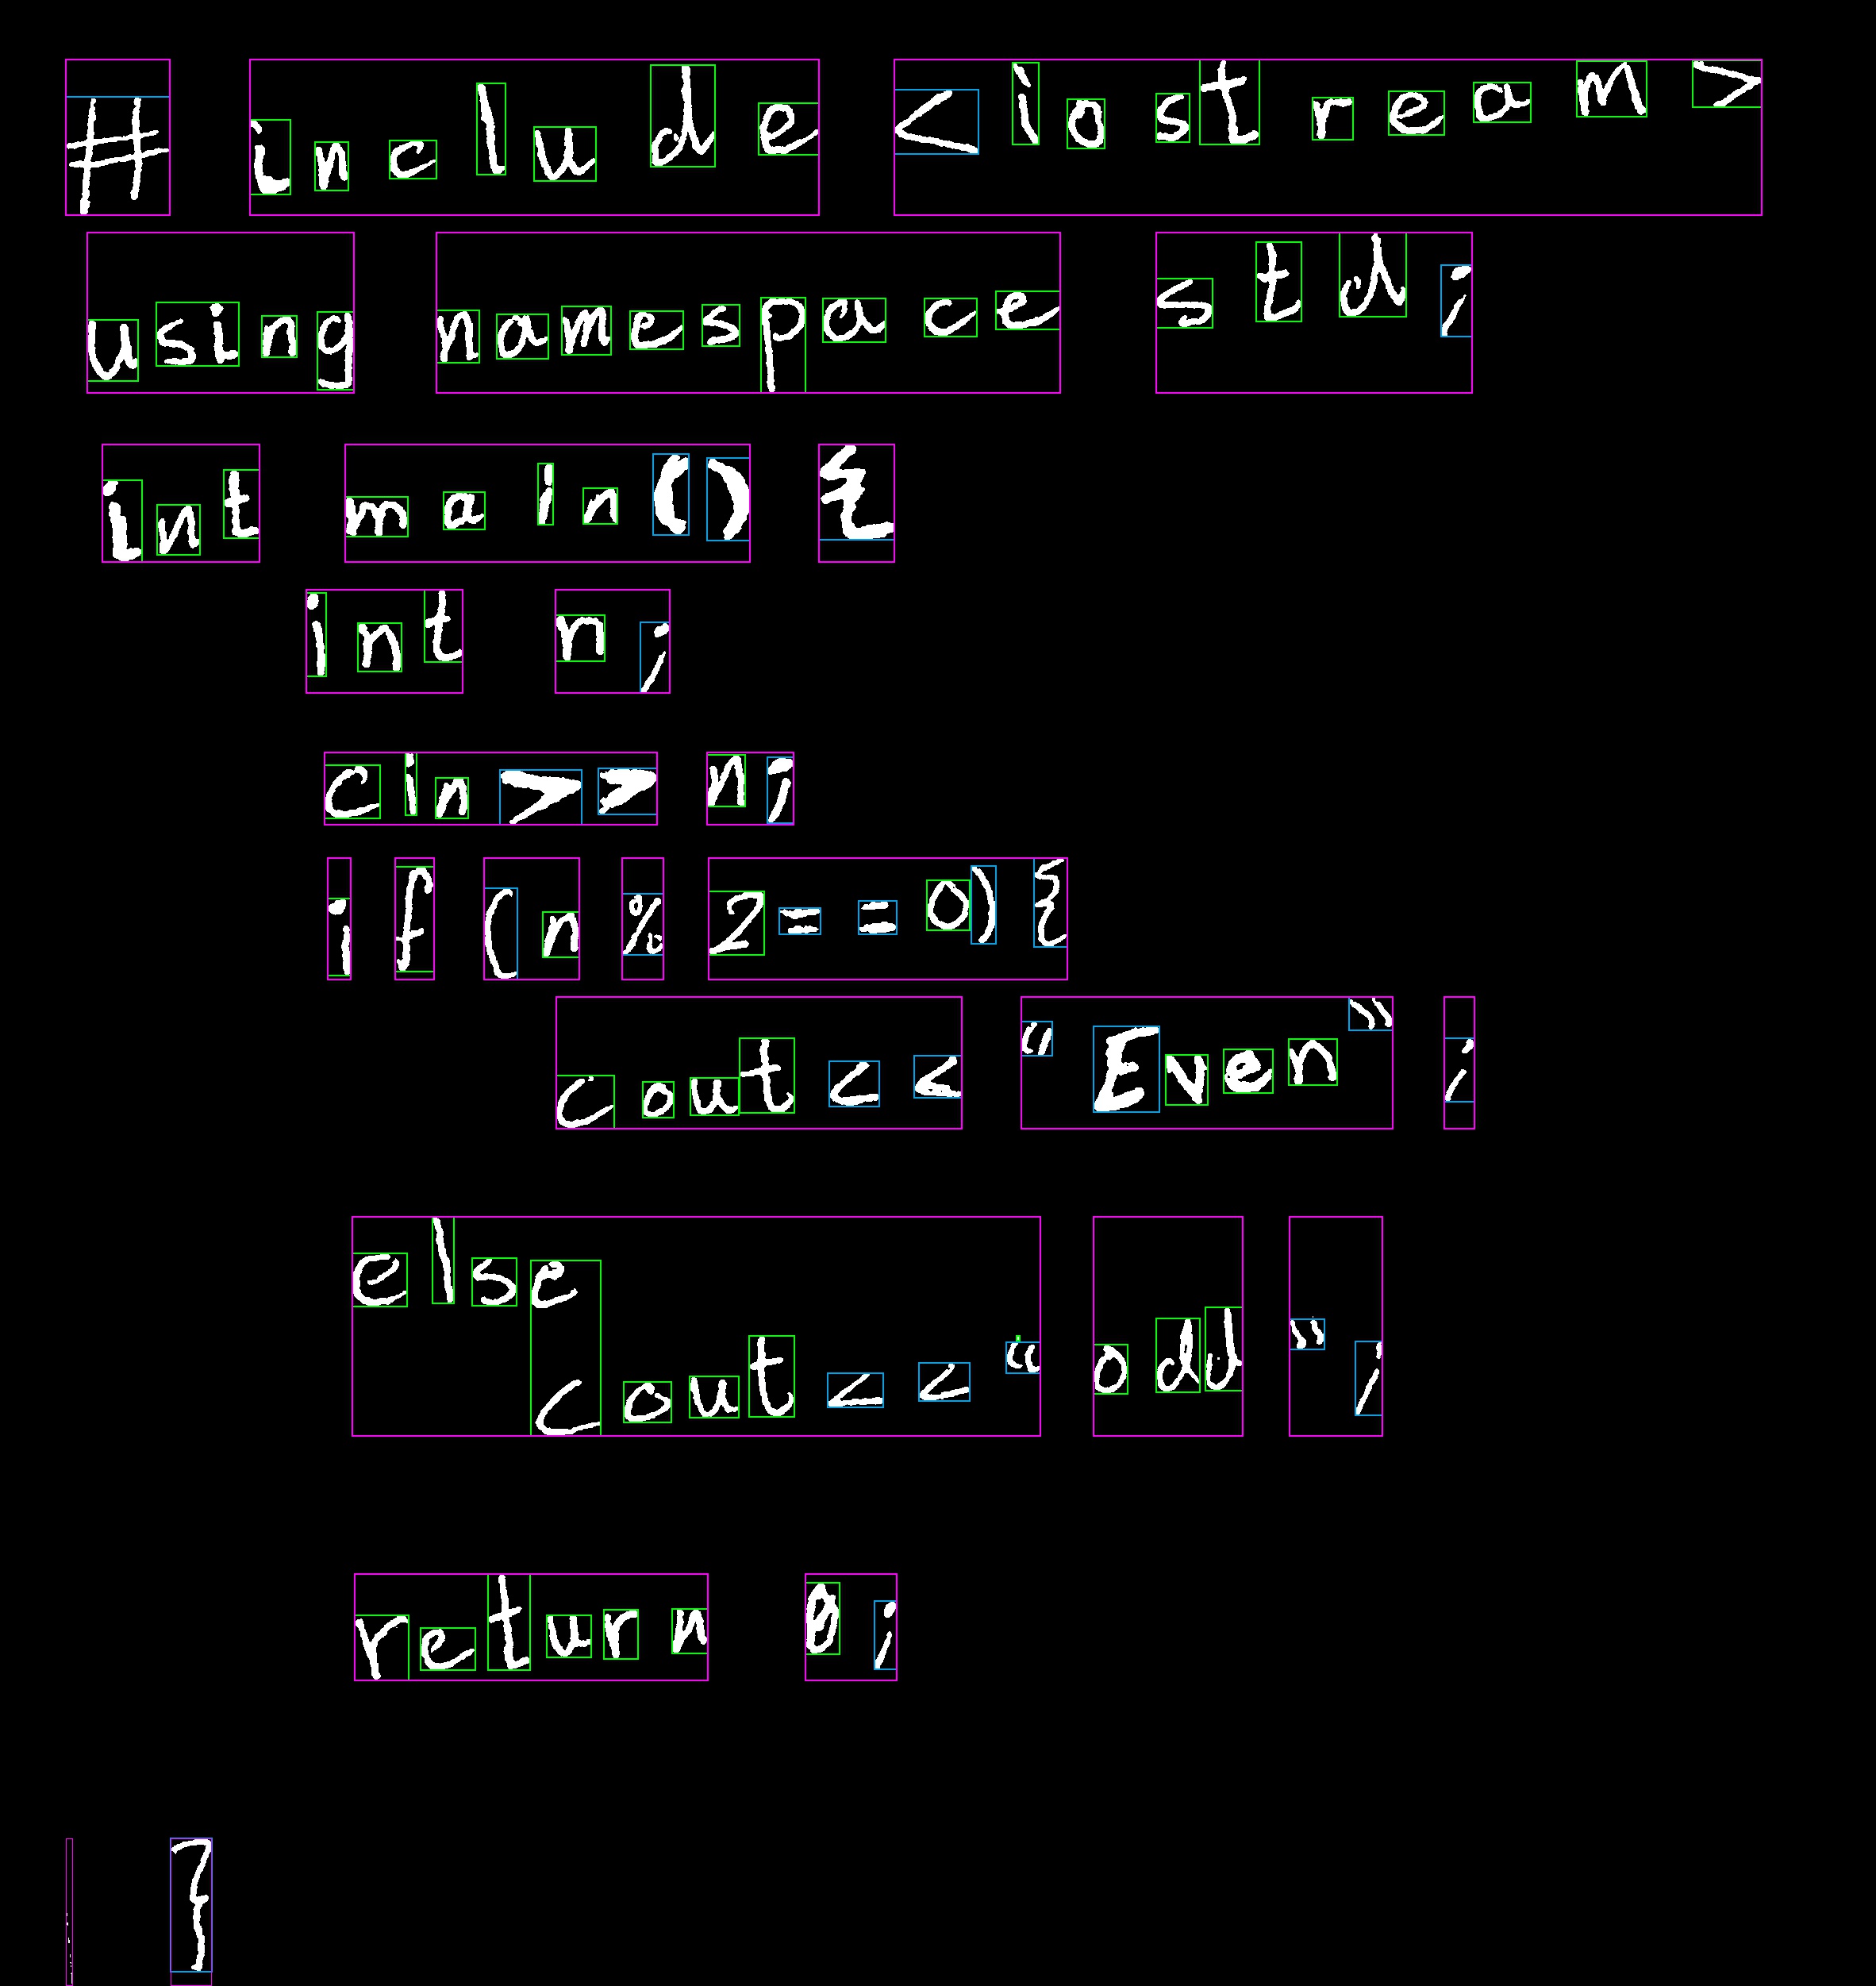 #include <iostream>
using namespace std;
int main() {
int n;
cin>> n;
if (n % 2==0) {
cout<< "Even" ;
else
cout<< "odd" ;
return 0;
}